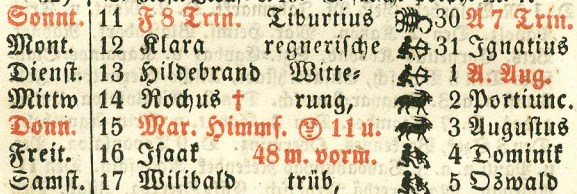 Sonnt. 11 F 8 Trin. Tiburtius 30 A 7 Trin.
Mont. 12 Klara regnerische 31 Ignatius
Dienst. 13 Hildebrand Witte⸗ 1 A. Aug.
Mittw 14 Rochus † rung, 2 Portiunc.
Donn. 15 Mar. Himmf. 11 u. 3 Augustus
Freit. 16 Isaak 48 m. vorm. 4 Dominik
Samst. 17 Wilibald trüb, 5 Oswald